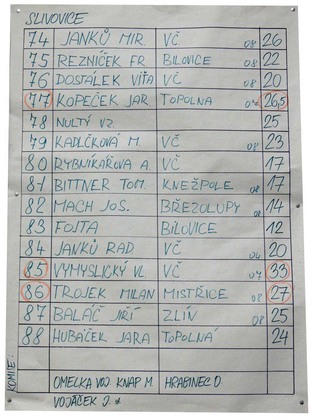 SLIVOVICE
74 JANKŮ MIR. VČ 08 26
75 ŘEZNÍČEK FR BILOVICE 08 22
76 DOSTÁLEK VÍŤA VČ 08 20
77 KOPEČEK JAR TOPOLNA 04 26,5
78 NULTÝ VZ. 25
79 KADLČKOVÁ M. VČ 08 23
80 RYBNIKÁŘOVA A. VČ 17
81 BITTNER TOM. KNEŽPOLE 08 17
82 MACH JOS. BŘEZOLUPY 08 14
83 FOJTA BÍLOVICE 12
84 JANKŮ RAD VČ 06 20
85 VYMYSLICKÝ VL VČ 07 33
86 TROJEK MILAN MISTŘICE 08 27
87 BALÁČ JIŘÍ ZLÍN 08 25
88 HUBÁČEK JARA TOPOLNÁ 24
KOMIE: OMELKA VOJ KNAP M HRABINEC O
VOJÁČEK J.